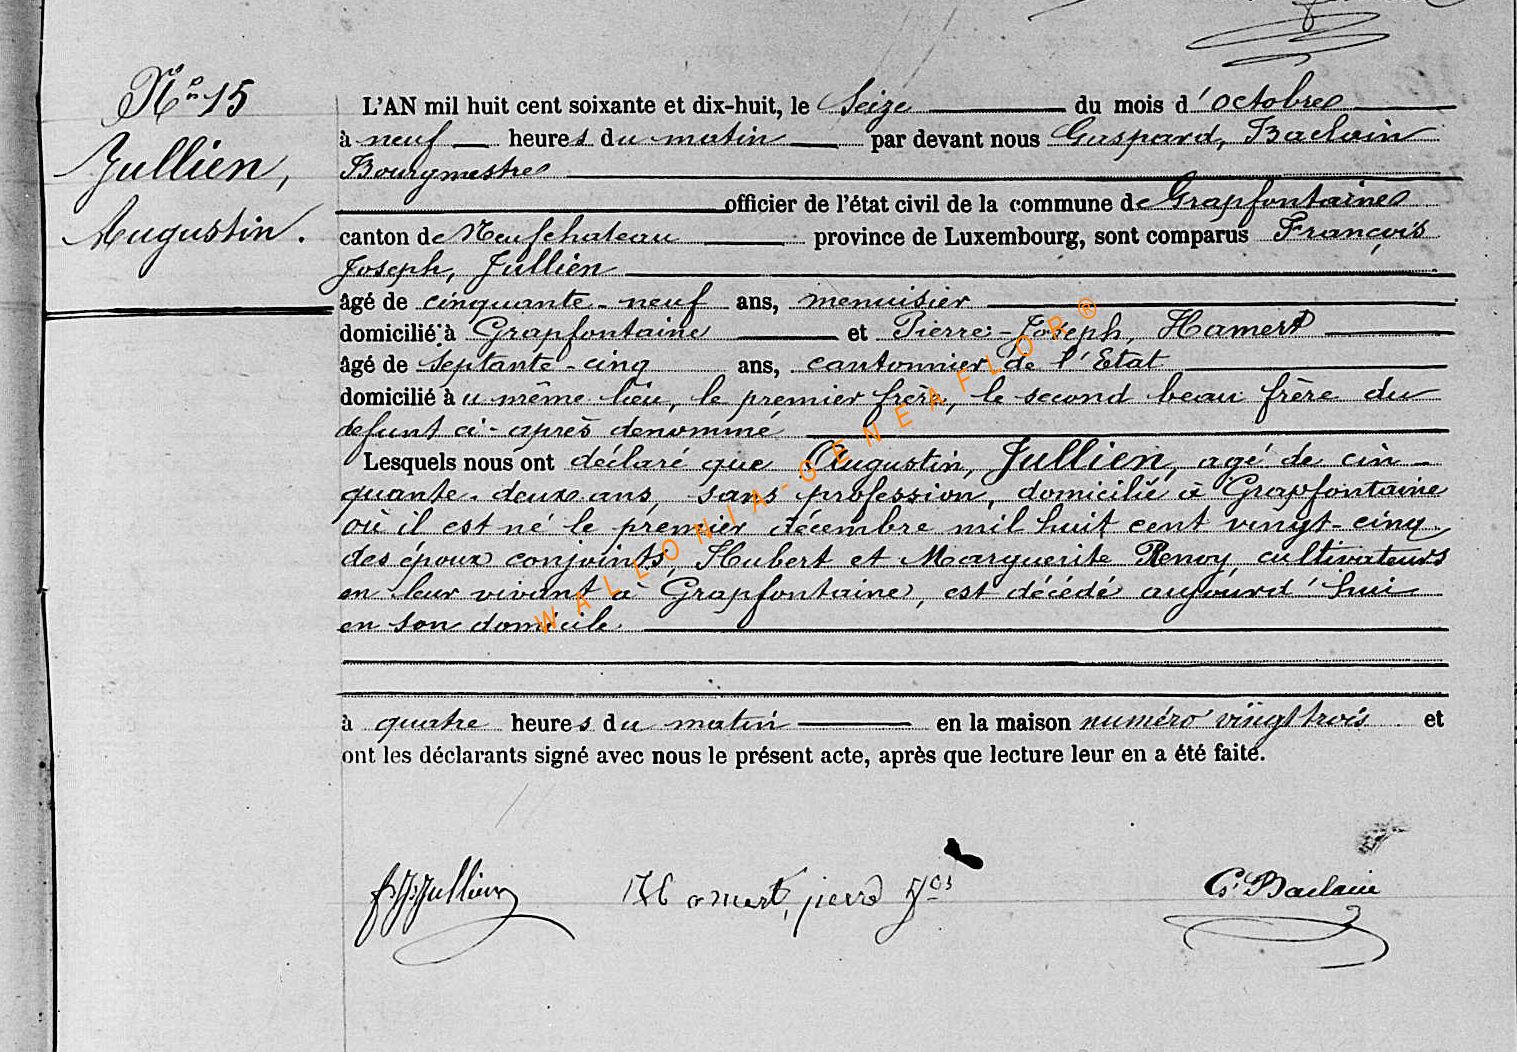 N° 15
Jullien,
Augustin.
L'AN mil huit cent soixante et dix-huit, le Seize du mois d'octobre
à neuf heures du matin par devant nous Gaspard, Baclain
Bourgmestre
officier de l'état civil de la commune de Grapfontaine
canton de Neufchateau province de Luxembourg, sont comparus François
Joseph, Jullien
âgé de cinquante-neuf ans, menuisier
domicilié à Grapfontaine et Pierre-Joseph, Hamert
âgé de septante-cinq ans, cantonnier de l'Etat
domicilié au même lieu, le premier frère, le second beau frère du
defunt ci-après dénommé
Lesquels nous ont déclaré que Augustin, Jullien, agé de cin-
quante-deux ans, sans profession, domicilié à Grapfontaine
où il est né le premier décembre mil huit cent vingt-cinq
des époux conjoints, Hubert et Marguerite Renoy, cultivateurs
en leur vivant à Grapfontaine, est décédé aujourd'hui
en son domicile
à quatre heures du matin en la maison numéro vingt trois et
ont les déclarants signé avec nous le présent acte, après que lecture leur en a été faite.
f. J. Jullien Hamert, pierre Jos G. Baclain
WALLONIA-GENEAFLOR®